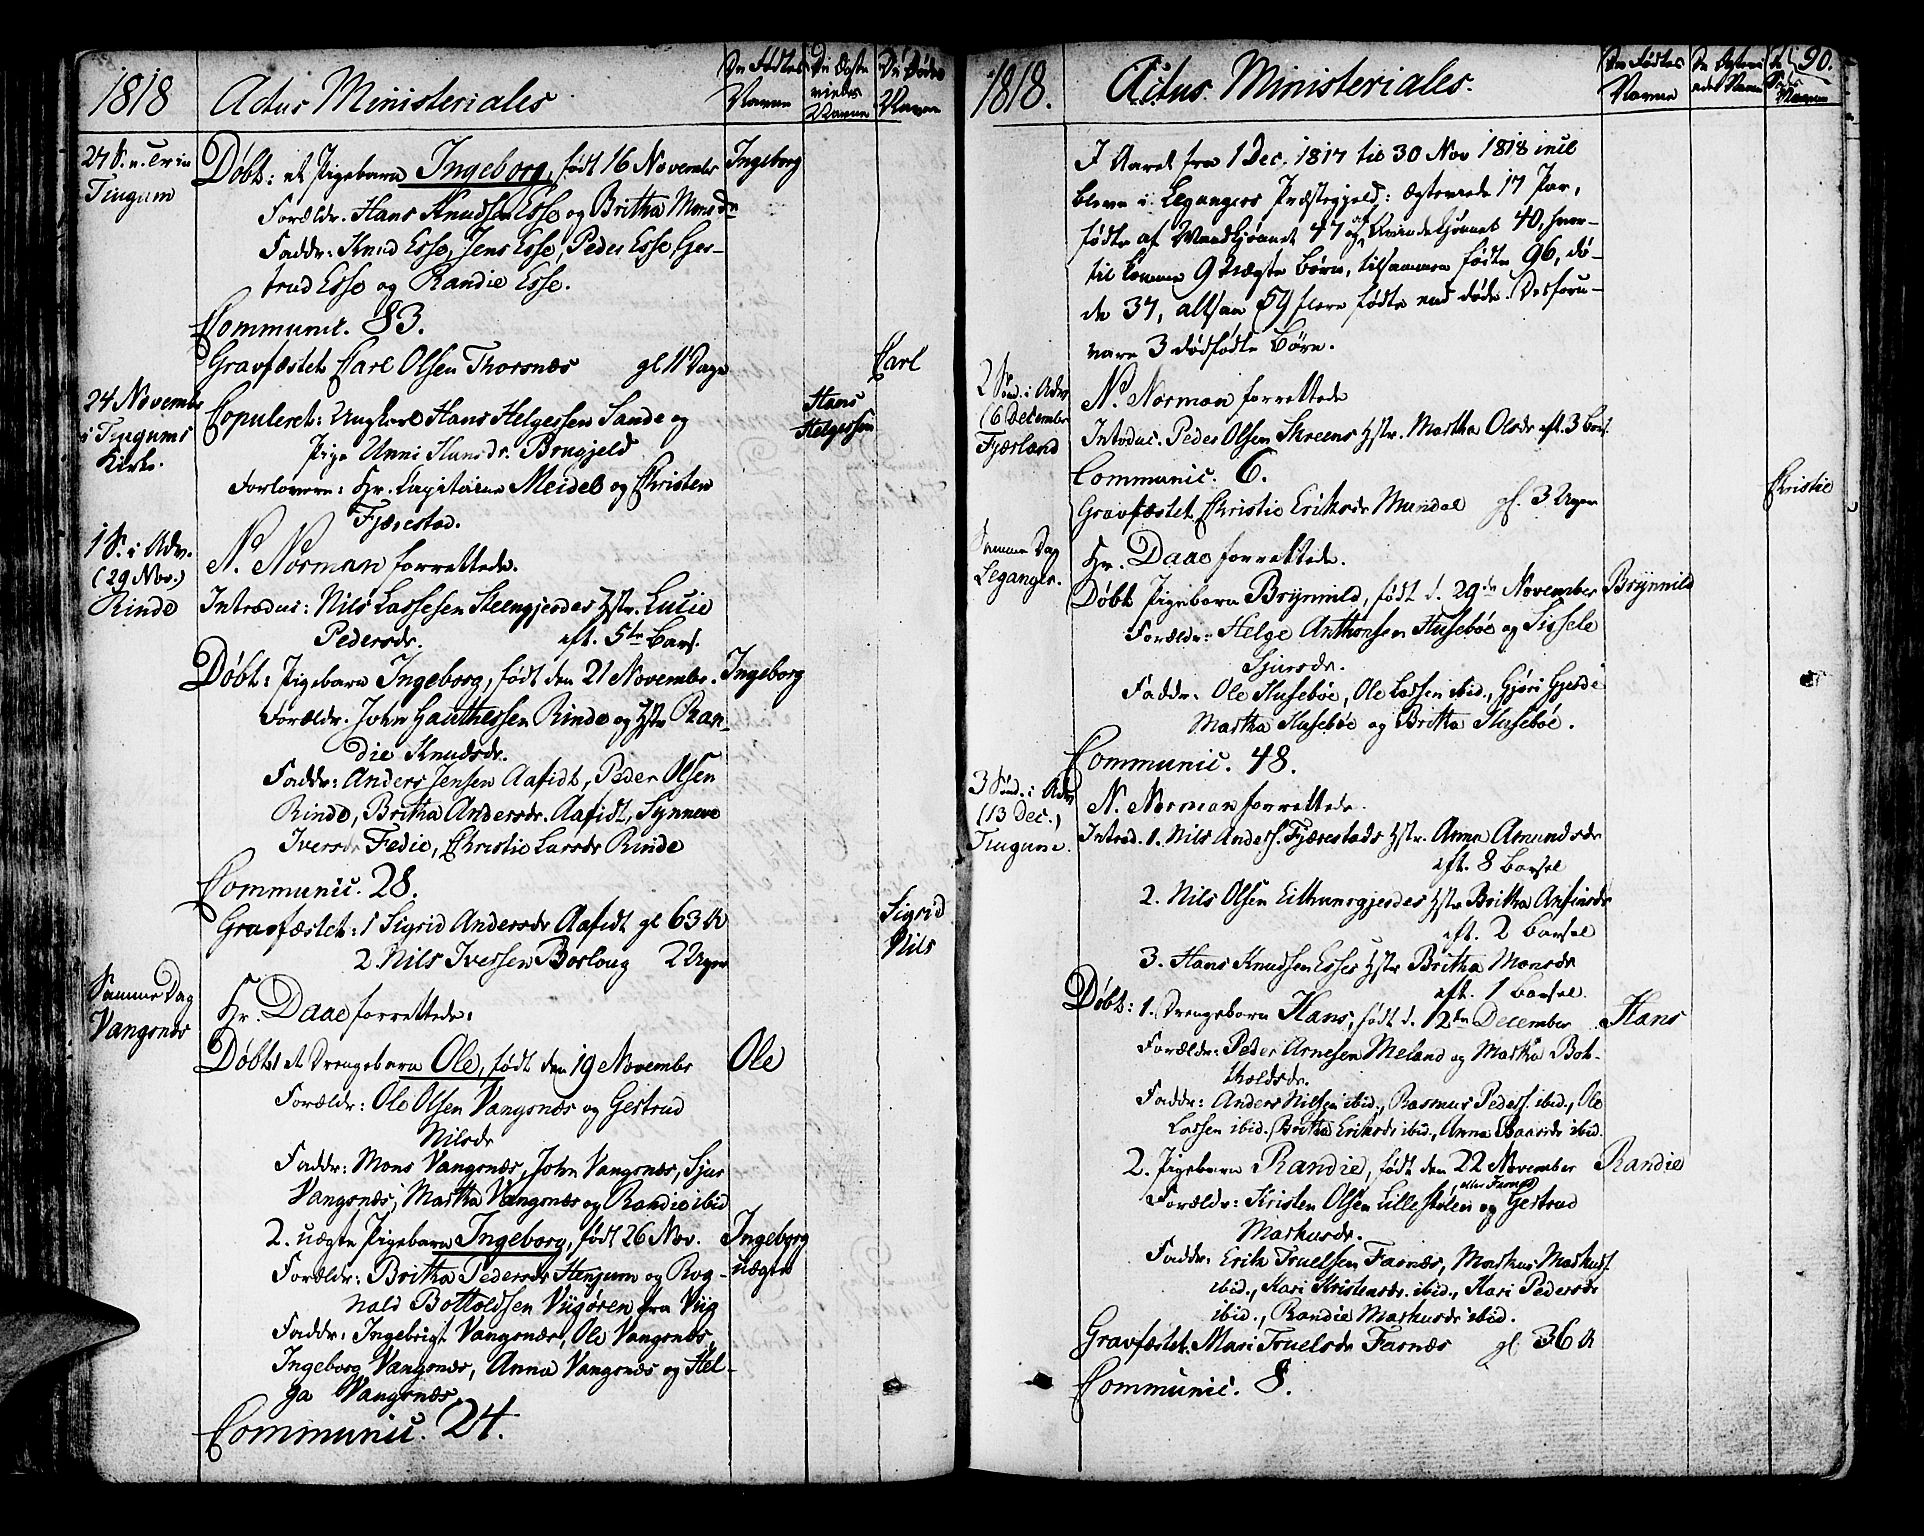 1818 Actus Ministeriales De Fødtes Navne De Ægte viedes Navne De Dødes Navne
27 S. e. Trin Tiugum
Døbt: et Pigebarn Ingeborg, født 16 Novembr Ingeborg
Forældr. Hans Knudsen Esse og Britha Monsdr
Faddr: Knud Esse, Jens Esse, Peder Esse, Ger-
trud Esse og Randie Esse.
Communic. 83.
Gravfæstet Carl Olsen Thorsnæs gl 11 Dage Carl
24 Novembr i Tiugums Kirke.
Copuleret: Ungkarl Hans Helgessen Sande og Hans Helgessen
Pige Unni Hansdr. Brugjeld
Forlovere: Hr. Capitaine Meidel og Christen
Fjærestad.
1 S. i Adv. (29 Nov.) Rinde
N. Norman forrettede.
Introduc: Nils Lassesen Steengjerdes Hstr. Lucie
Pedersdr. eft. 5te Bars.
Døbt: Pigebarn Ingeborg, født den 21 Novembr. Ingeborg
Forældr. John Gauthessen Rinde og Hstr Ran-
die Knudsdr.
Faddr: Anders Jensen Aafidt, Peder Olsen
Rinde, Britha Andersdr. Aafidt, Synneve
Iversdr Fedie, Christie Larsdr Rinde
Communic. 28.
Gravfæstet: 1 Sigrid Andersdr Aafidt gl 63 Sigrid
2. Nils Iverssen Borloug 2 Uger Nils
Samme Dag Vangsnæs
Hr. Daae forrettede:
Døbt 1 et Drengebarn Ole, født den 19 Novembr Ole
Forældr: Ole Olsen Vangsnæs og Gertrud
Nilsdr
Faddr: Mons Vangsnæs, John Vangsnæs, Sjur
Vangsnæs, Martha Vangsnæs og Randie ibid
2. uægte Pigebarn Ingeborg, født 26 Nov. Ingeborg uægte
Forældr: Britha Pedersdr Henjum og Rog-
nald Bottoldsen Viigøren fra Viig
Faddr: Ingebrigt Vangsnæs, Ole Vangsnæs,
Ingeborg Vangsnæs, Anna Vangsnæs og Hel-
ga Vangsnæs
Communic. 24.
1818. Actus Ministeriales. De Fødtes Navne Navne Navne 90.
I Aaret fra 1 Dec. 1817 til 30 Nov 1818 incl
bleve i Legangers Præstegjeld: ægteviede 17 Par,
fødte af Mandkjønnet 47 og af Qvindekjønnet 40, hvor-
til komme 9 uægte Børn, tilsammen fødte 96, dø-
de 37, altsaa 59 flere fødte end døde. Desforu-
den 3 dødfødte Børn.
2 Sønd. i Adv (6 Decembr Fjærland
N. Norman forrettede
Introduc. Peder Olsen Skreens Hstr. Martha Olsdr eft. 3 Bars.
Communic. 6.
Gravfæstet Christie Eriksdr Mundal gl. 3 Uger Christie
Samme Dag Leganger.
Hr. Daae forrettede.
Døbt Pigebarn Brynnild, født d. 29de November Brynnild
Forældr: Helge Anthonsen Husebøe og Sissele
Sjursdr.
Faddr: Ole Husebøe, Ole Lassen ibid., Gjøri Gjerde
Martha Husebøe og Britha Husebøe.
Communic. 48.
3 Sønd. i Adv (13 Dec.) Tiugum.
N. Norman forrettede.
Introd. 1. Nils Anderss. Fjærestads Hstr. Anna Amundsdr
eft. 8 Barsel
2. Nils Olsen Eithungjerdes Hstr Britha Anfindsdr
eft. 2 Barsel
3. Hans Knudsen Esses Hstr Britha Monsdr
eft. 1 Barsel.
Døbt: 1. Drengebarn Hans, født d. 2den December Hans
Forældr: Peder Arnesen Meland og Martha Bot-
tholdsdr.
Faddr: Anders Nilsen ibid., Rasmus Peders. ibid., Ole
Lassen ibid. Britha Eriksdr ibid., Anna ibid.
2. Pigebarn Randie, født den 22 November Randie
Forældr: Kristen Olsen Lillestølen (eller Farnæs) og Gertrud
Markusdr.
Faddr: Erik Truelssen Farnæs, Markus Markuss.
ibid., Kari Kristensdr. ibid., Kari Pedersdr
ibid., Randie Markusdr ibid.
Gravfæstet. Mari Truelsdr Farnæs gl. 36
Communic. 8.